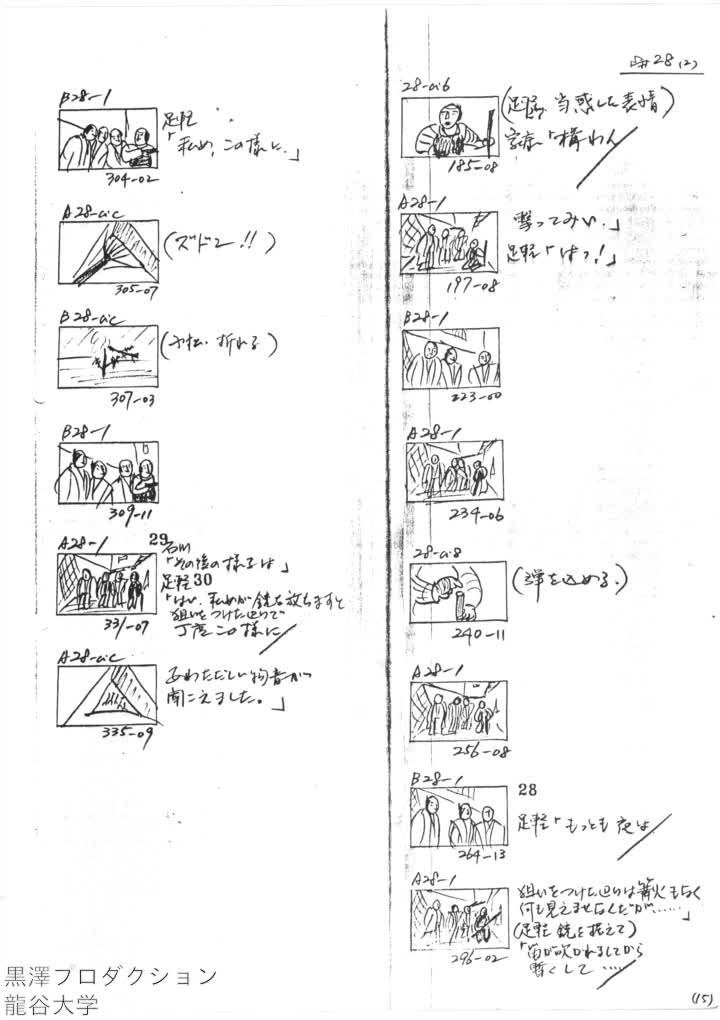 #28(2)
28-ai6
(足軽、当惑した表情)
家康「構わん
185-08
A28-1
撃ってみい.」
足軽「はっ!」
197-08
B28-1
223-00
A28-1
234-06
28-ai8
(弾を込める.)
240-11
A28-1
256-08
B28-1
28
足軽「もっとも 夜は
264-13
A28-1
狙いをつけた辺りは篝火もなく
何も見えませなんだが……」
(足軽 銃を据えて)
「笛が吹かれましてから
暫くして ……
296-02
B28-1
足軽
「私め、この様に.」
304-02
A28-aic
(ズドン!!)
305-07
B28-aic
折れる)
307-03
B28-1
309-11
A28-1
29
石川
「その後の様子は」
足軽30
「はい、私めが銃を放ちますと
狙いをつけた辺りで
丁度この様に
331-07
A28-aic
あわただしい物音が
聞こえました。」
335-09
(15)
黒澤プロダクション
龍谷大学